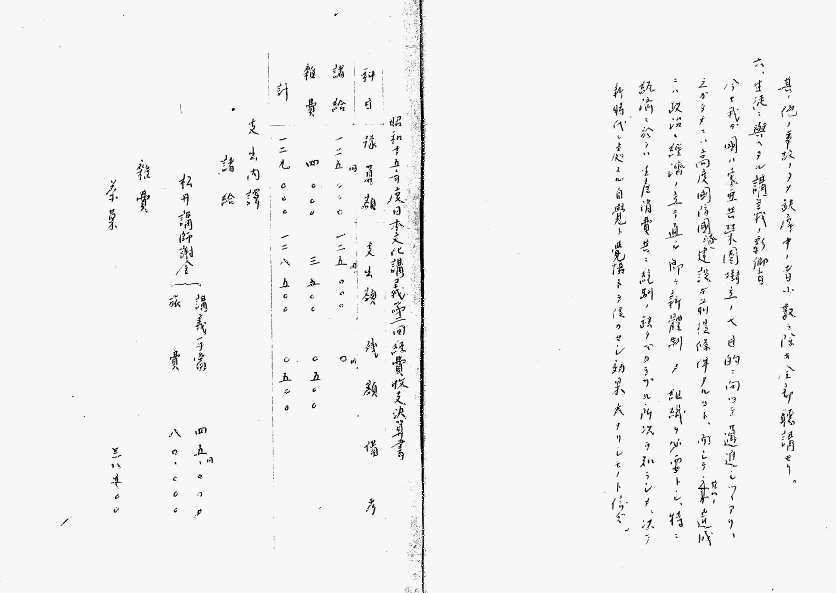 其ノ他ノ事故ノタメ缺席中ノ者小數ヲ除キ全部聽講セリ。
六、生徒ニ與ヘタル講義ノ影響
今ヤ我ガ國ハ東亞共榮圏樹立ノ大目的ニ向ツテ邁進シツツアリ、
之ガタメニハ高度國防國家建設ガ前提條件タルコト、而シテ其ノ達成
ニハ政治、經濟ノ立テ直シ卽チ新體制ノ組織ヲ必要トシ、特ニ
經濟ニ於テハ生産消費共ニ統制ノ缺クベカラザル所次ヲ知ラシメ、次テ
新時代ニ處スル自覺ト覺悟トヲ促カセシ効果大ナリシモノト信ズ。
昭和十五年度日本文化講義第二回經費收支決算書
科目 豫算額 支出額 殘額 備考
諸給 一二五〇〇〇 一二五〇〇〇 〇
雜費 四〇〇〇 三五〇〇 〇五〇〇
計 一二九〇〇〇 一二八五〇〇 〇五〇〇
支出内譯
諸給
松井講師謝金 講義手當 四五、〇〇〇
旅費 八〇、〇〇〇
雜費
茶菓 三五〇〇